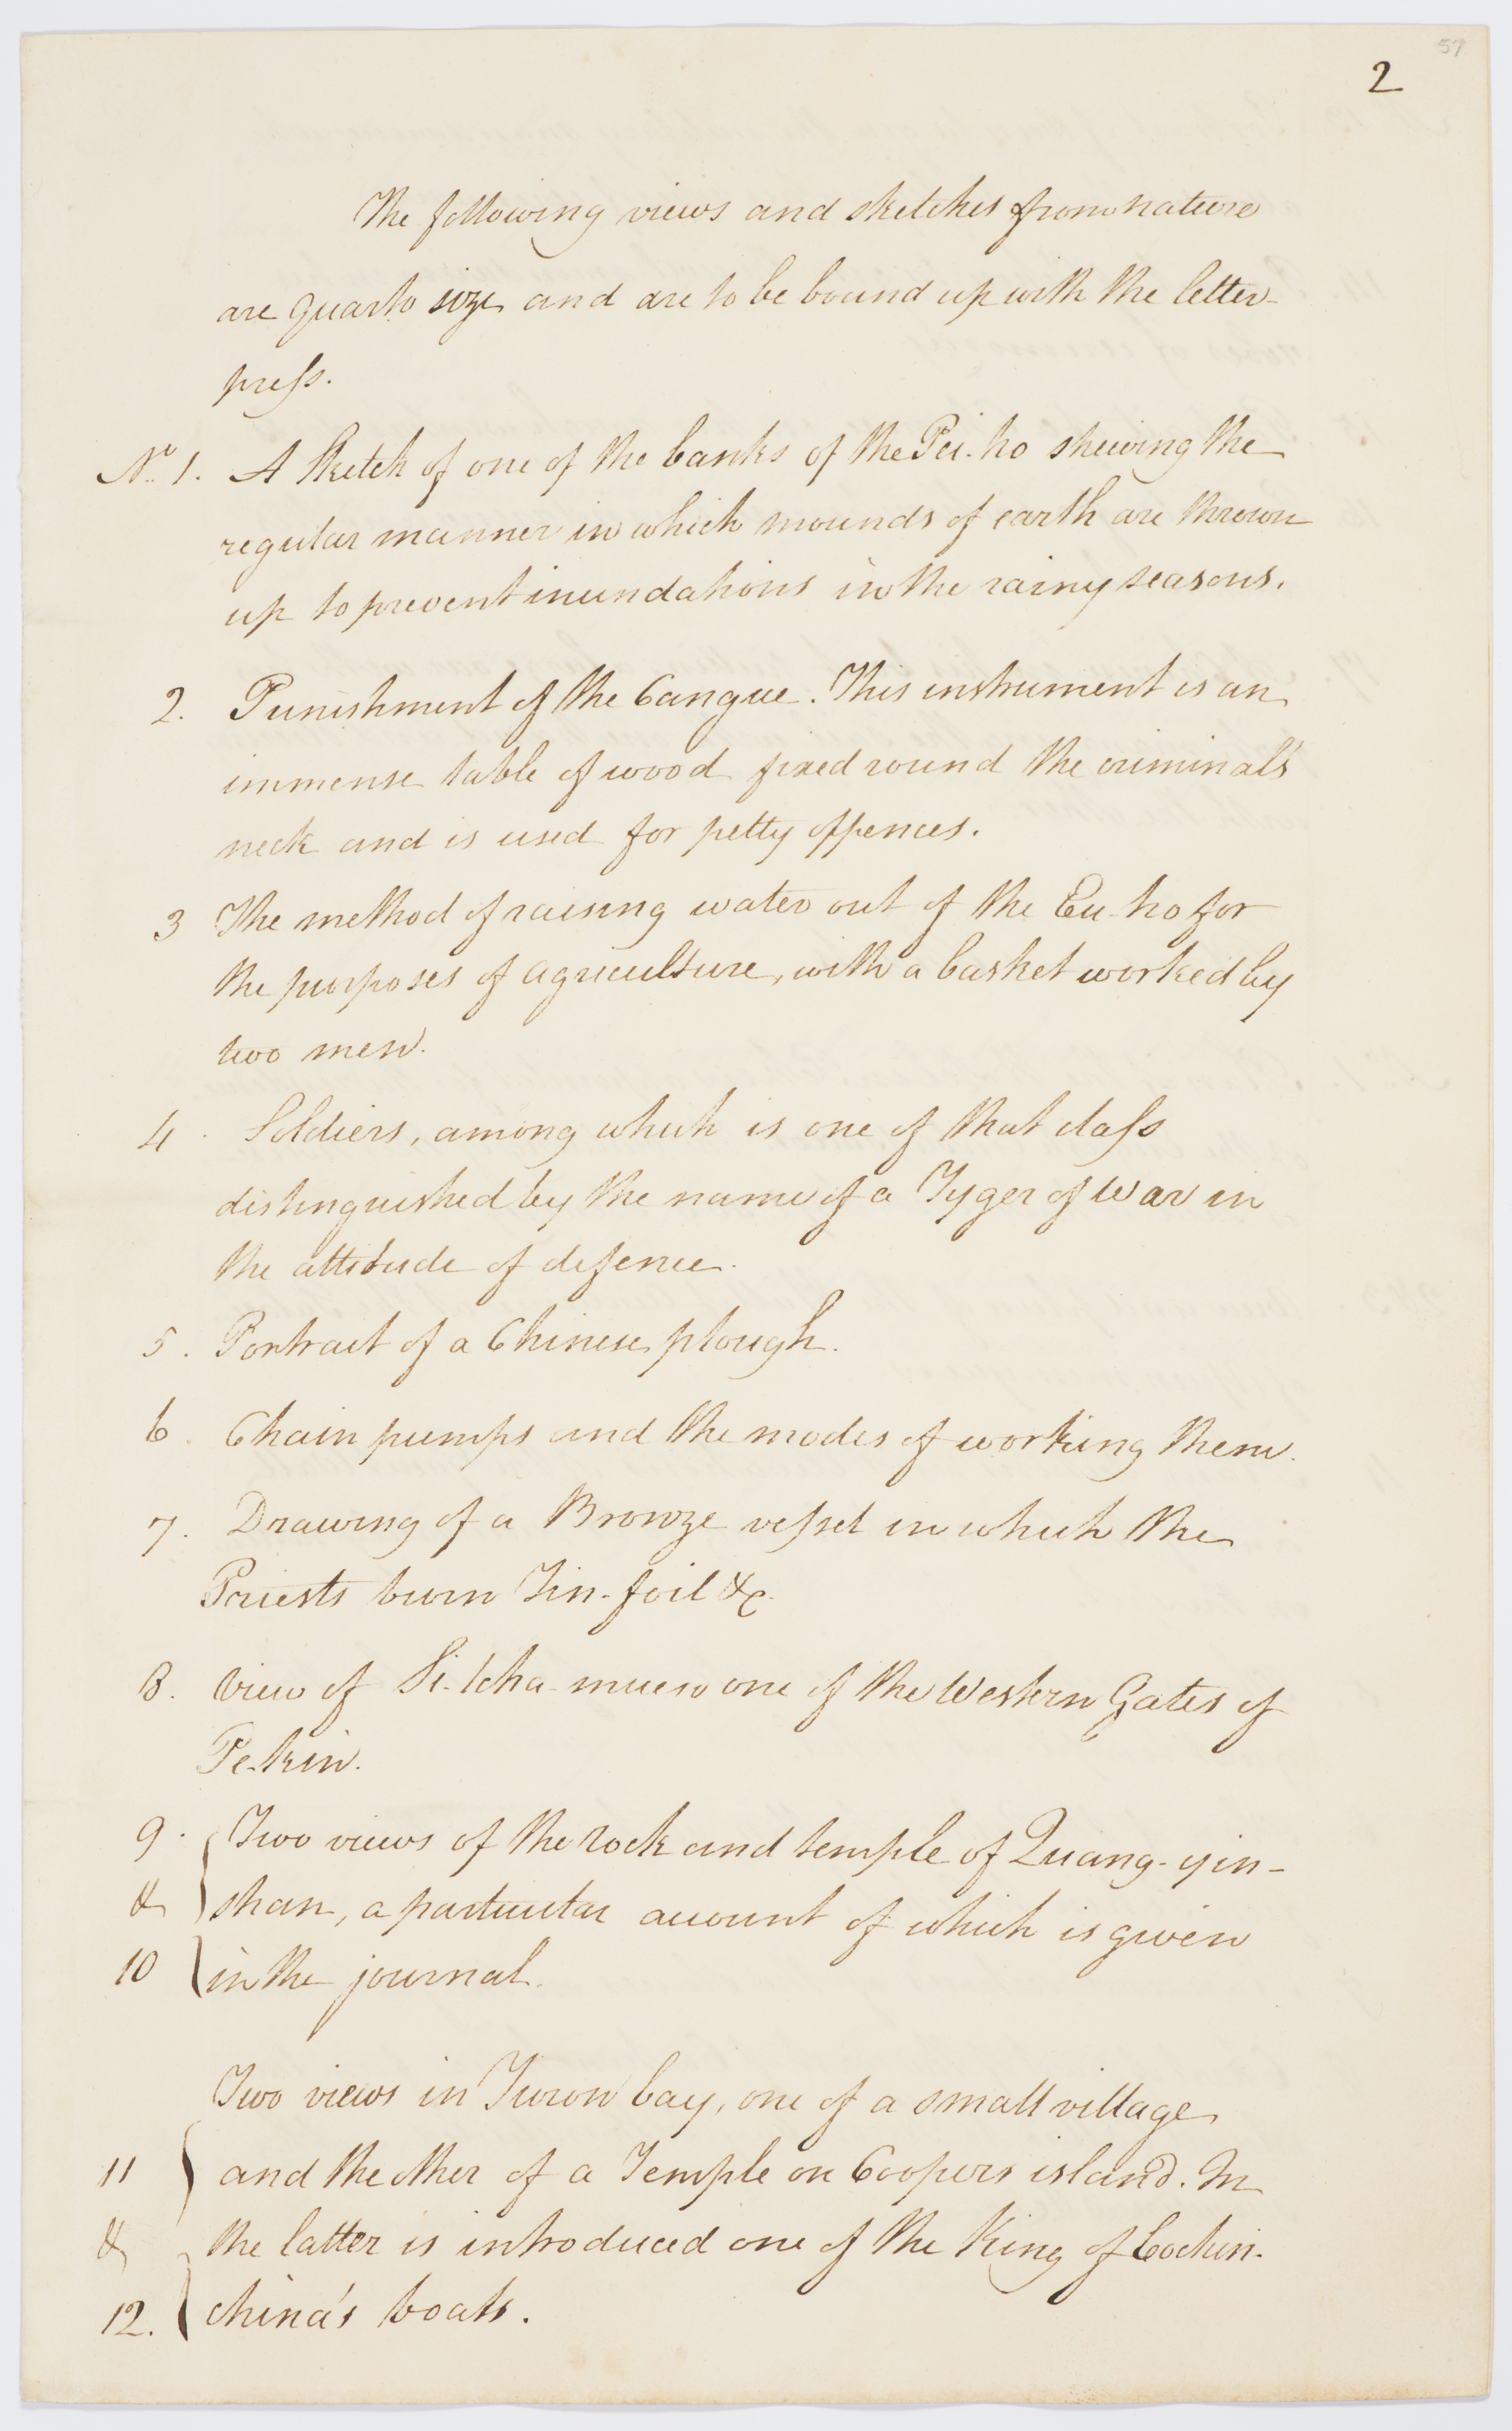 57
2
The following views and sketches from nature
are quarto size and are to be bound up with the letter-
press.
No. 1. A Sketch of one of the banks of the Pei-ho shewing the
regular manner in which mounds of earth are thrown
up to prevent inundations in the rainy seasons.
2. Punishment of the Cangue. This instrument is an
immense table of wood fixed round the criminal's
neck and is used for petty offences.
3 The method of raising water out of the Eu-ho for
the purposes of agriculture, with a basket worked by
two men.
4. Soldiers, among which is one of that class
distinguished by the name of a Tyger of War in
the attitude of defence.
5. Portrait of a Chinese plough.
6. Chain pumps and the modes of working them.
7. Drawing of a Bronze vessel in which the
Priests burn Tin-foil &c.
8. View of Si-tcha-muen one of the Western Gates of
Pe-kin.
9. Two views of the rock and temple of Quang-yin-
& shan, a particular account of which is given
10 in the journal.
Two views in Turon bay, one of a small village
11 and the other of a Temple on Coopers island. In
& the latter is introduced one of the King of Cochin-
12. china's boats.